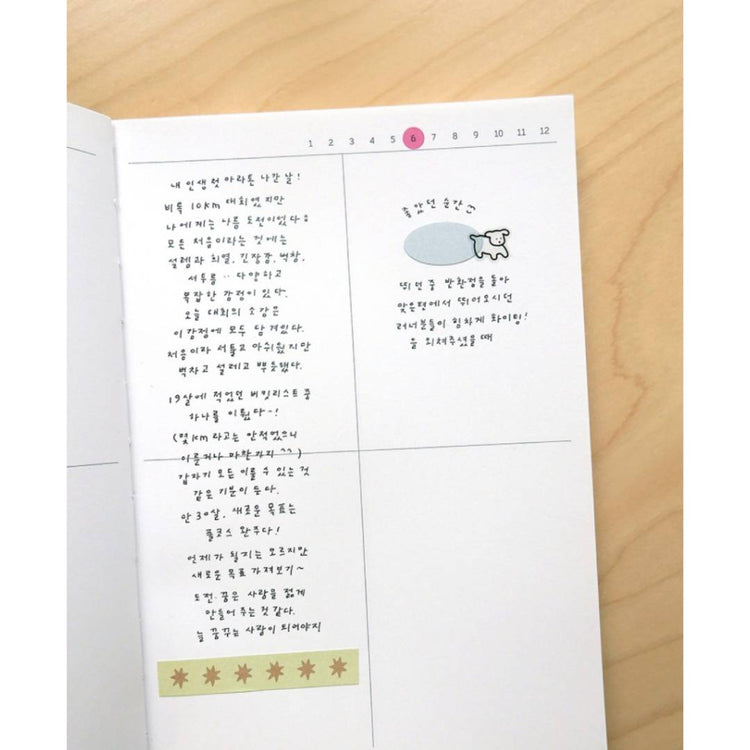 1 2 3 4 5 6 7 8 9 10 11 12
내 인생 첫 마라톤 나간 날!
비록 10km 대회였지만
나에게는 나름 도전이었다.
모든 처음이라는 것에는
설렘과 희열, 긴장감, 벅참,
서투름.. 다양하고
복잡한 감정이 있다.
오늘 대회의 소감은
이 감정에 모두 담겨있다.
처음이라 서툴고 아쉬웠지만
벅차고 설레고 뿌듯했다.
19살에 적었던 버킷리스트 중
하나를 이뤘다~!
(몇km 라고는 안적었으니
이룬거나 마찬가지 ^^)
갑자기 모든 이룰 수 있는 것
같은 기분이 든다.
만 30살, 새로운 목표는
풀코스 완주다!
언제가 될지는 모르지만
새로운 목표 가져보기~
도전·꿈은 사람을 젊게
만들어 주는 것 같다.
늘 꿈꾸는 사람이 되어야지
좋았던 순간
뛰던 중 반환점을 돌아
맞은편에서 뛰어오시던
러너분들이 힘차게 화이팅!
을 외쳐주셨을 때